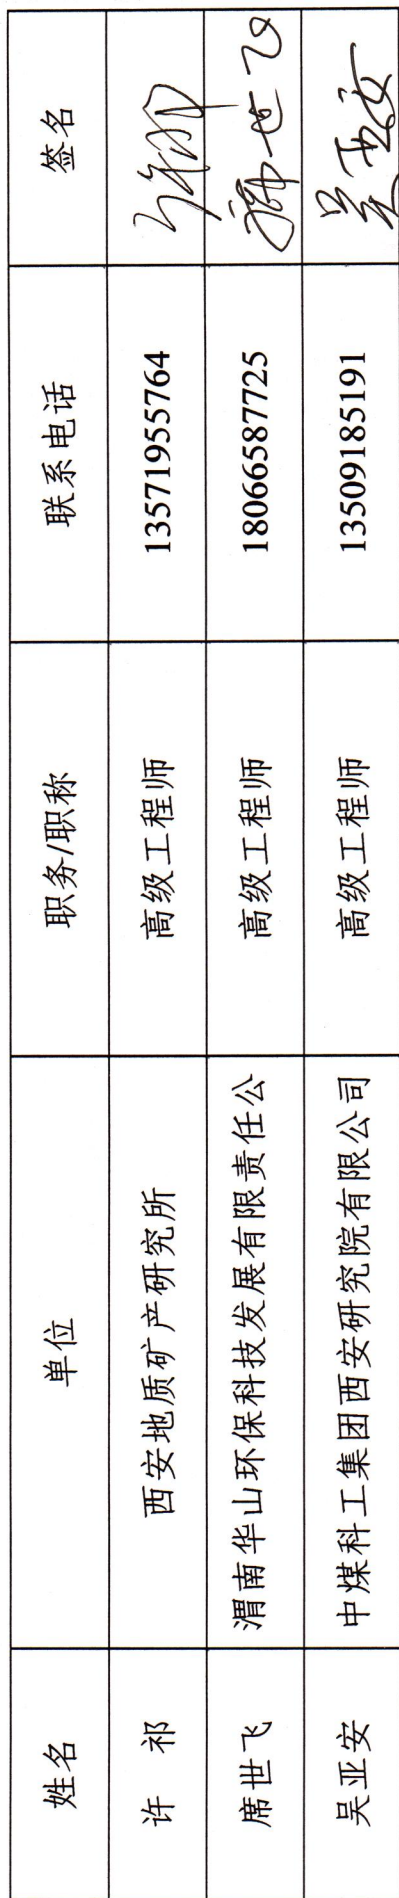 姓名 单位 职务/职称 联系电话 签名
许 祁 西安地质矿产研究所 高级工程师 13571955764 许祁
席世飞 渭南华山环保科技发展有限责任公 高级工程师 18066587725 席世飞
吴亚安 中煤科工集团西安研究院有限公司 高级工程师 13509185191 吴亚安